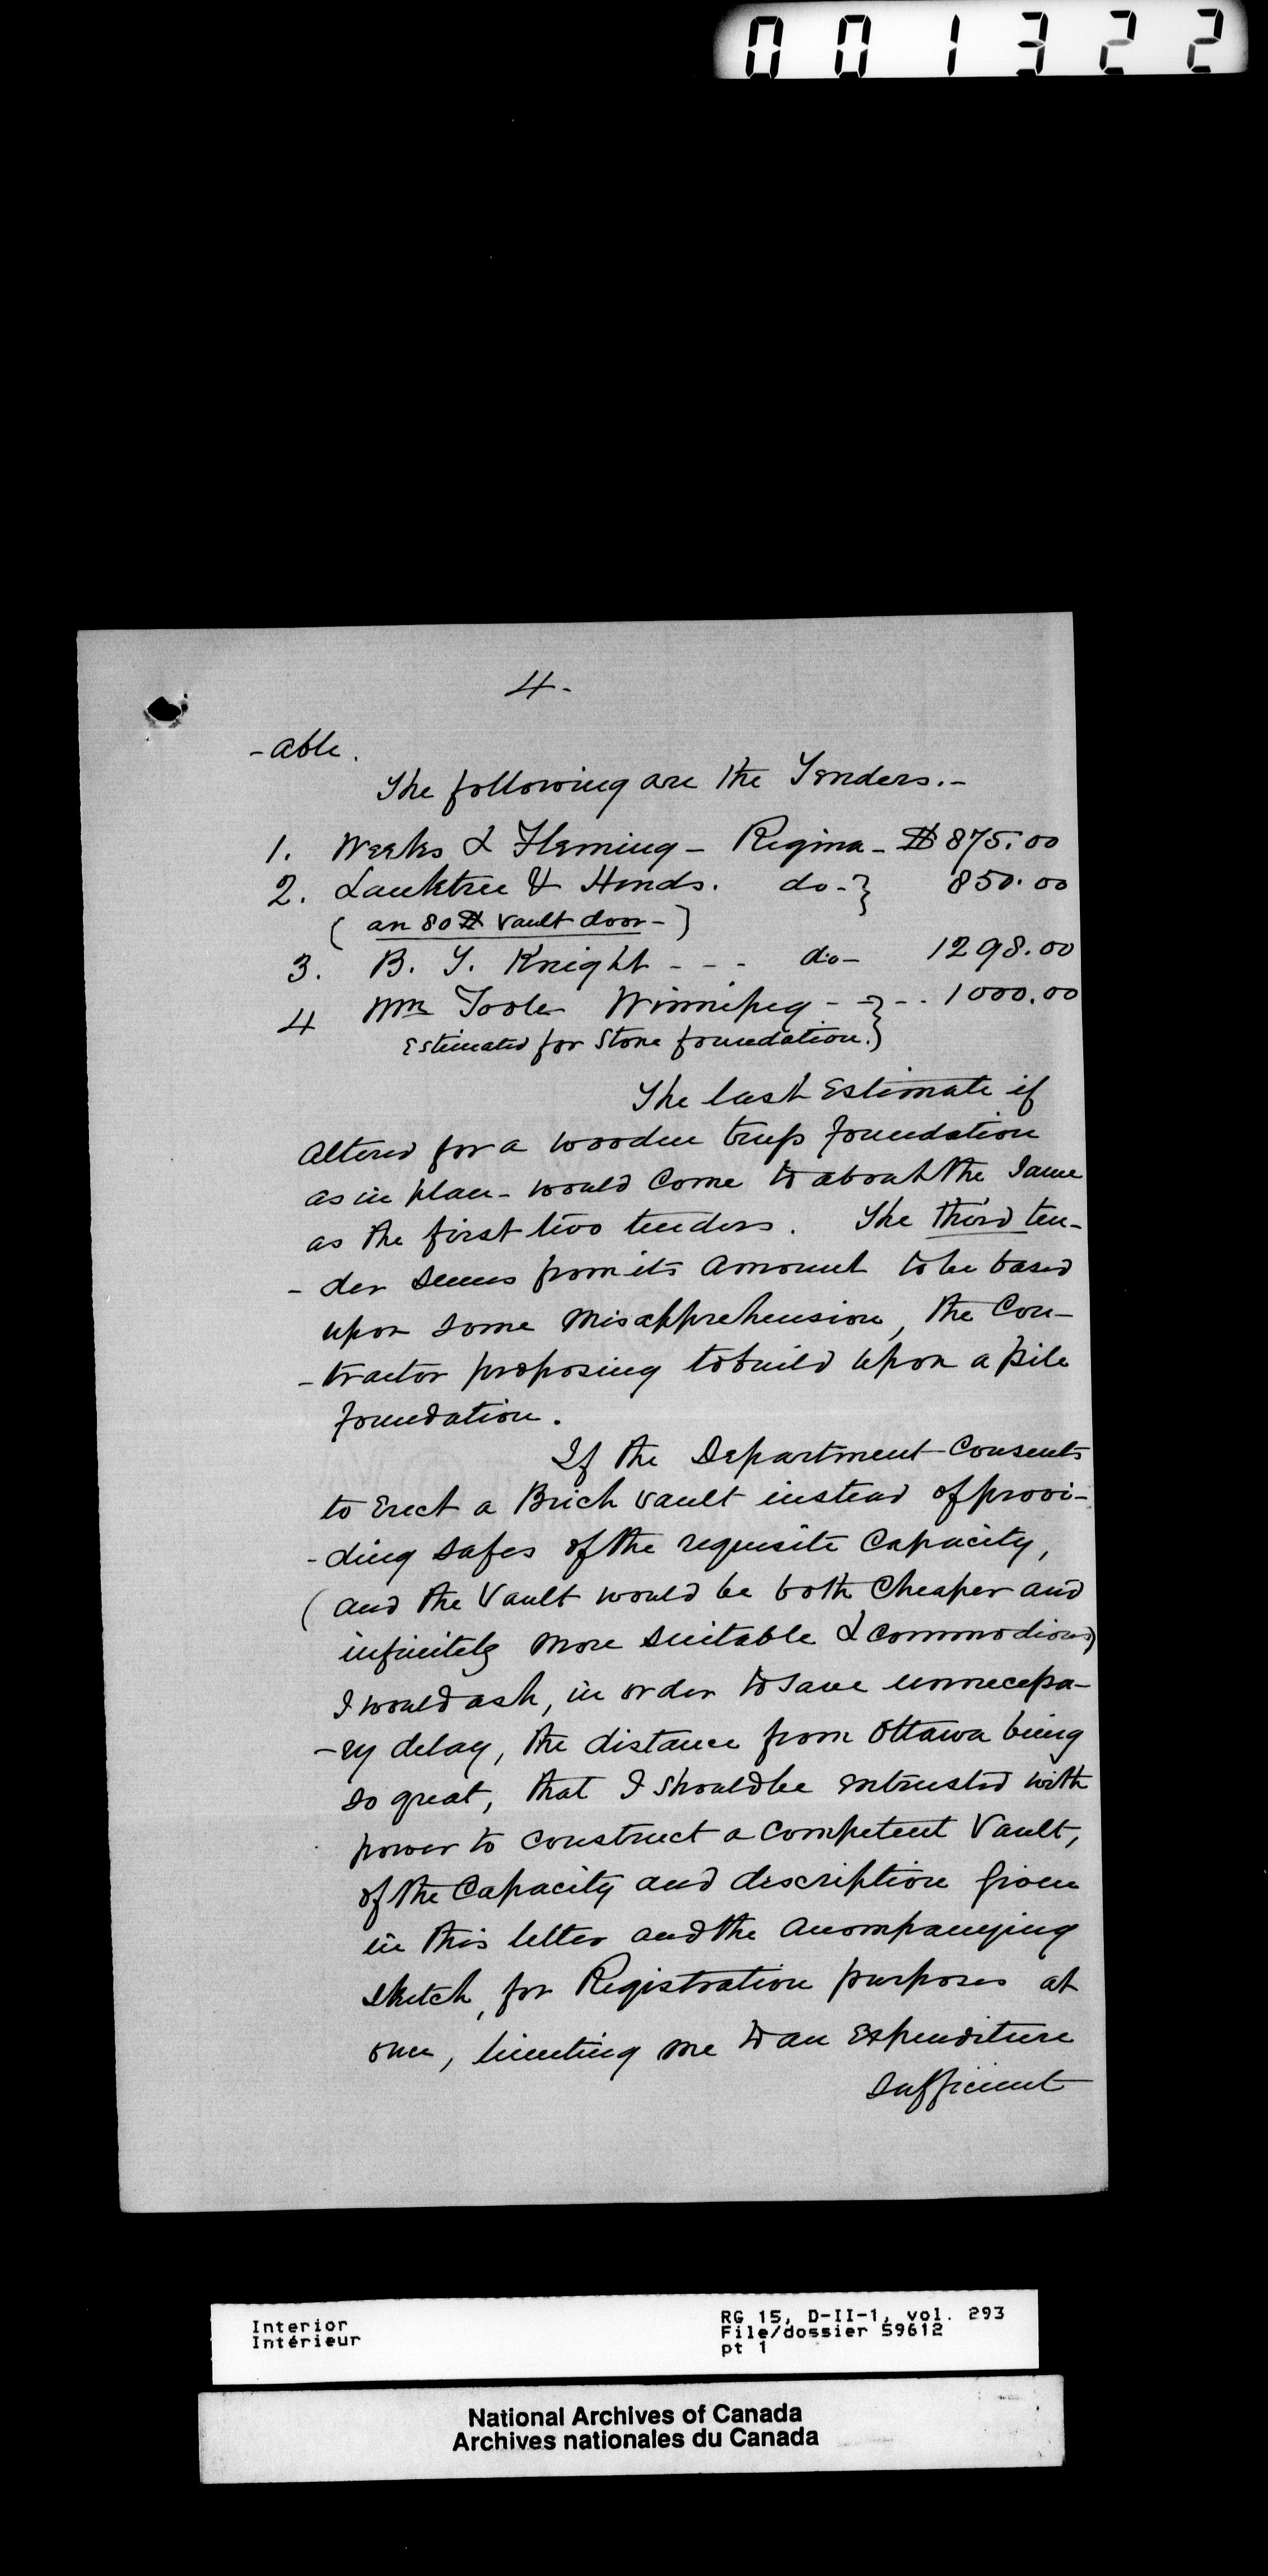 001322
4.
-able.
The following are the Tenders.-
1. Weeks & Fleming - Regina - $875.00
2. Lauktree & Hinds. do - } 850.00
( an 80 $ vault door - )
3. B. Y. Knight - - - do - 1298.00
4 Wm Toole Winnipeg - - } - - 1000.00
Estimated for Stone foundation. }
The last Estimate if
altered for a wooden truss foundation
as in plan - would come to about the same
as the first two tenders. The third ten-
- der seems from its amount to be based
upon some misapprehension, the Con-
- tractor proposing to build upon a pile
foundation.
If the Department Consents
to Erect a Brick vault instead of provi-
- ding safes of the requisite Capacity,
( and the Vault would be both Cheaper and
infinitely more suitable & commodious)
I would ask, in order to save unnecessa-
- ry delay, the distance from Ottawa being
so great, that I should be entrusted with
power to construct a competent Vault,
of the Capacity and description given
in this letter and the accompanying
sketch, for Registration purposes at
once, limiting me to an Expenditure
sufficient
Interior
Intérieur
RG 15, D-II-1, vol. 293
File/dossier 59612
pt 1
National Archives of Canada
Archives nationales du Canada